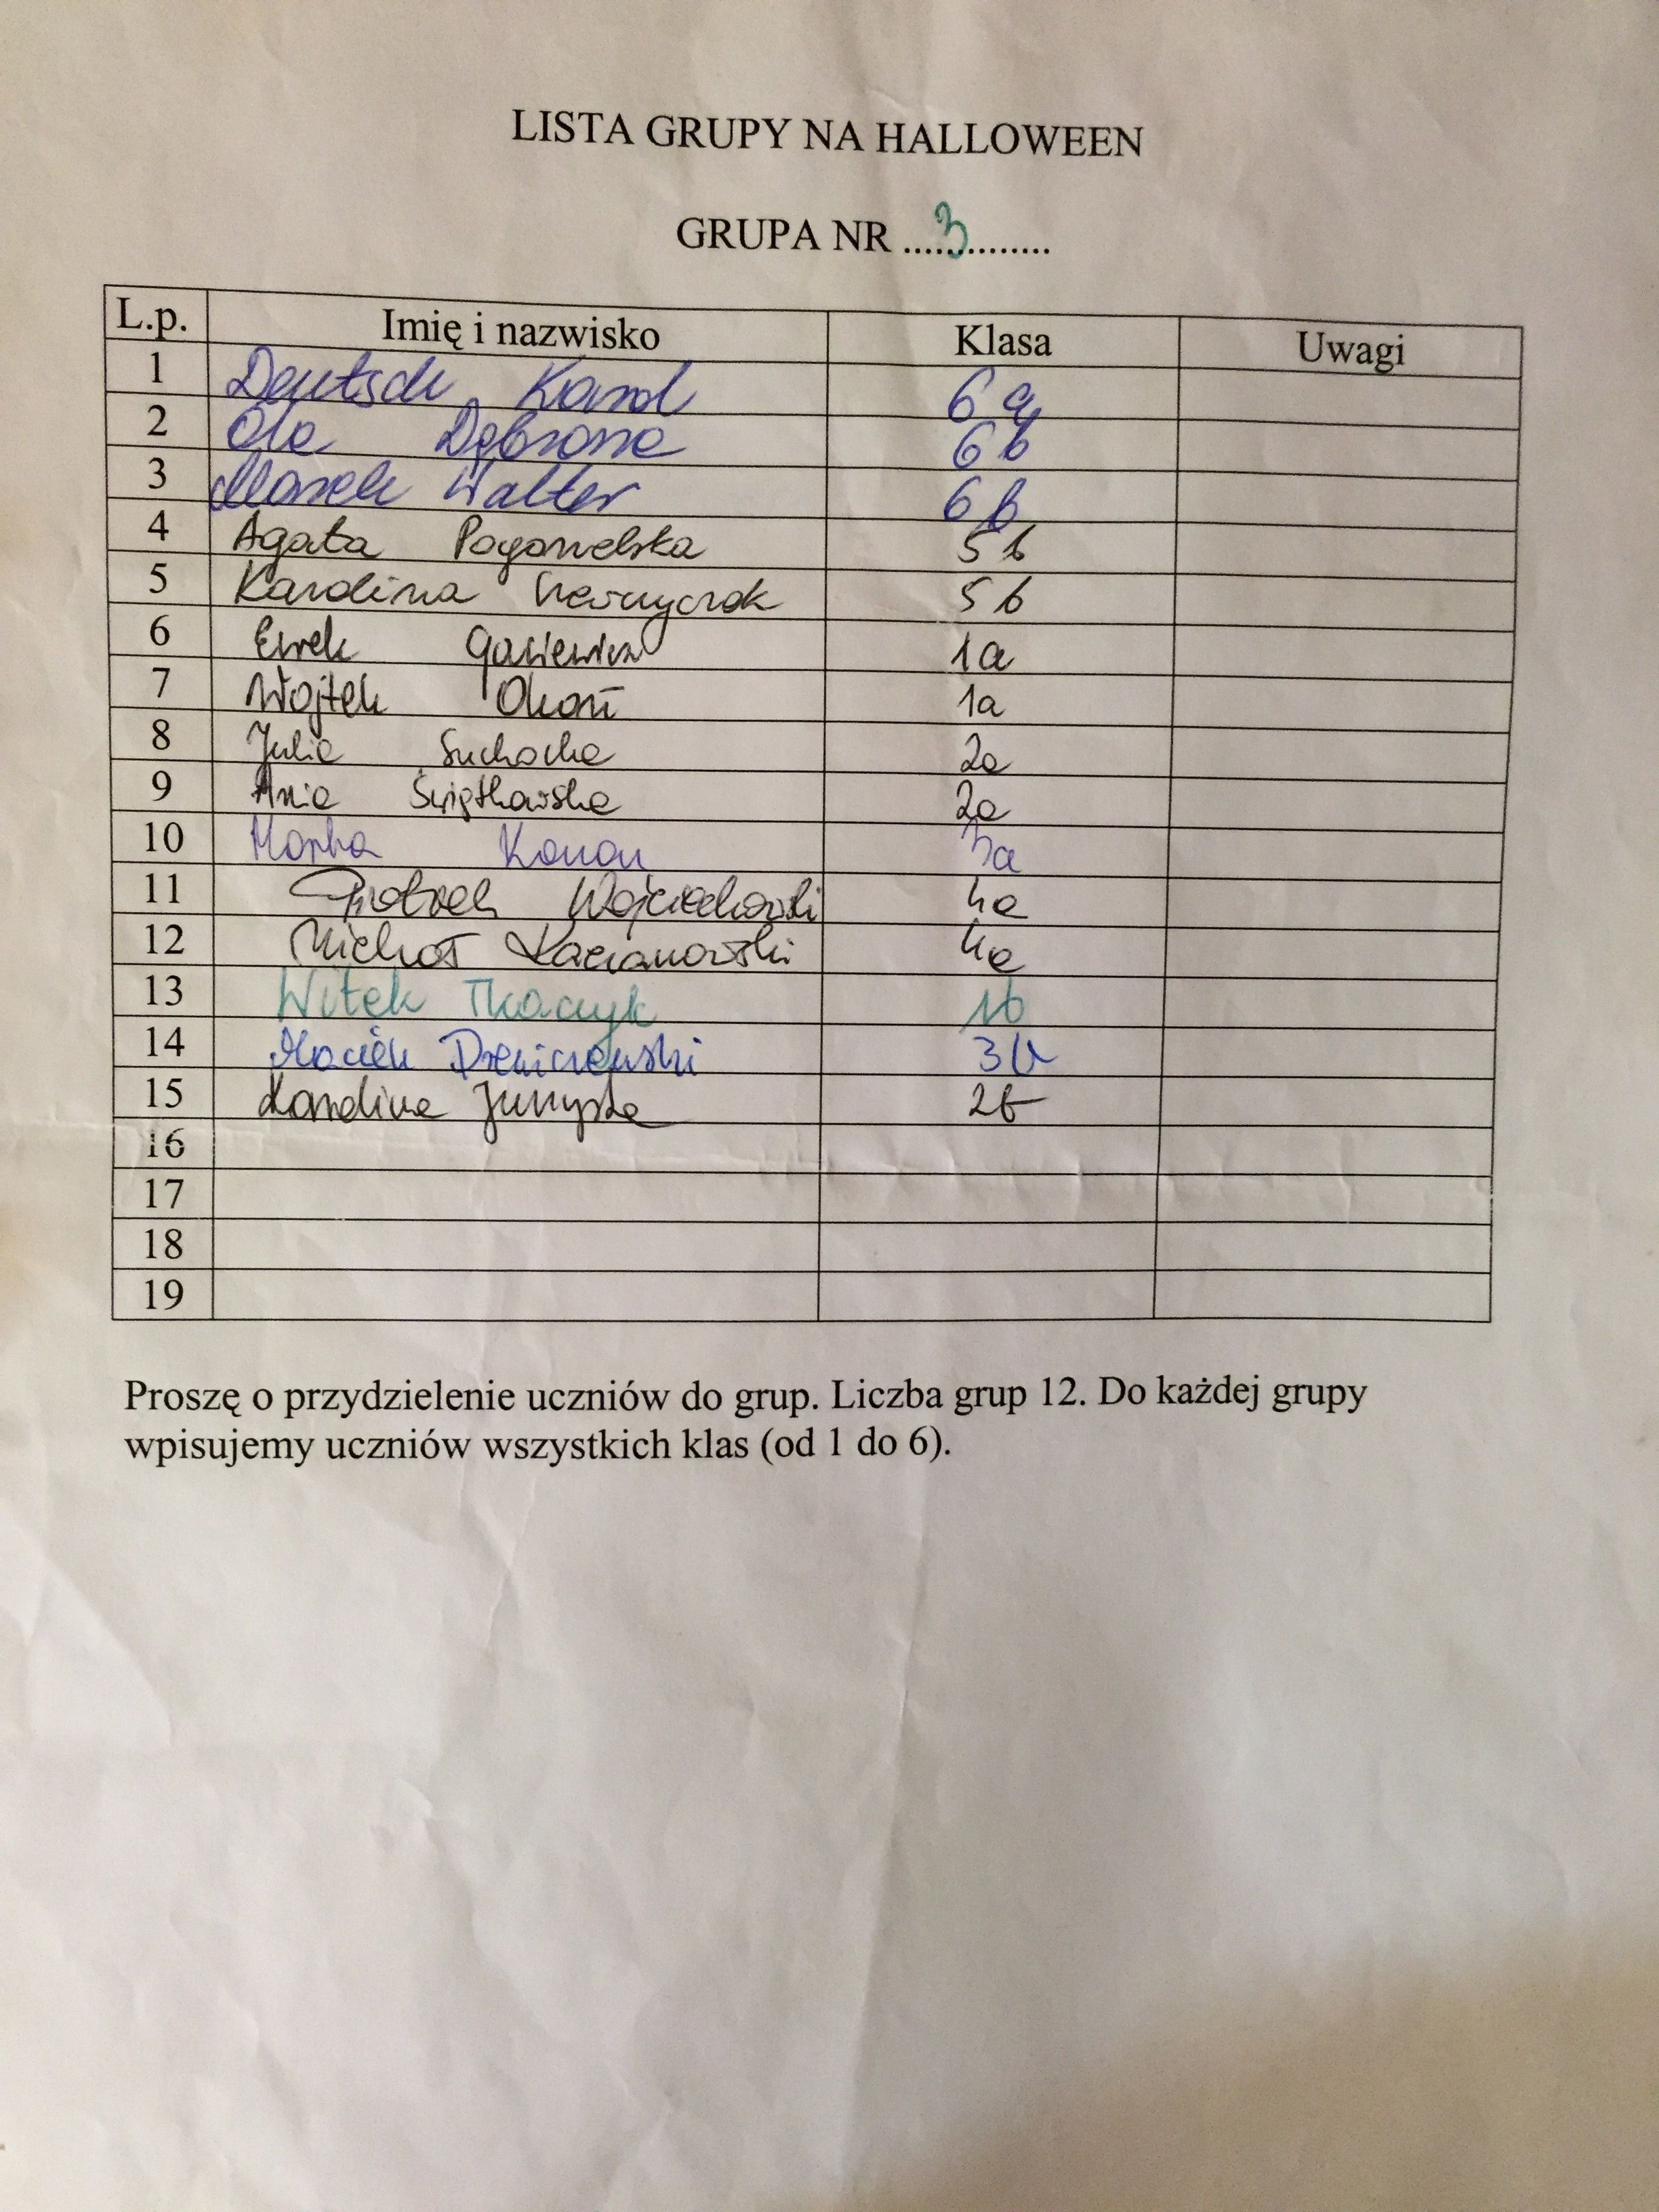 LISTA GRUPY NA HALLOWEEN
GRUPA NR ....3..............
L.p. Imię i nazwisko Klasa Uwagi
1 Deutsch Karol 6 a
2 Ola Dąbrowa 6 b
3 Marek Walter 6 b
4 Agata Pogorzelska 5 b
5 Karolina 5 b
6 1a
7 Wojtek Okoń 1a
8 Julia Suchocka 2a
9 Ania Świątkowska 2a
10 Marta Konon 3a
11 Piotrek Wojciechowski 4a
12 Michał 4a
13 Witek Tkaczyk 1b
14 Maciek 3b
15 Karolina 2b
16
17
18
19
Proszę o przydzielenie uczniów do grup. Liczba grup 12. Do każdej grupy
wpisujemy uczniów wszystkich klas (od 1 do 6).